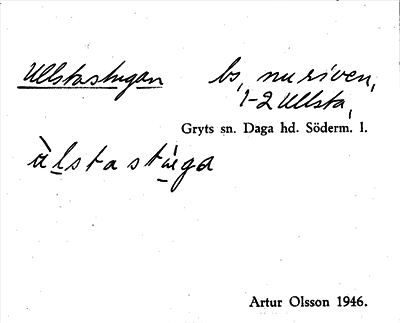 Ullstastugan bs, nu riven,
1-2 Ullsta,
Gryts sn. Daga hd. Söderm. l.
ùlstastùga
Artur Olsson 1946.